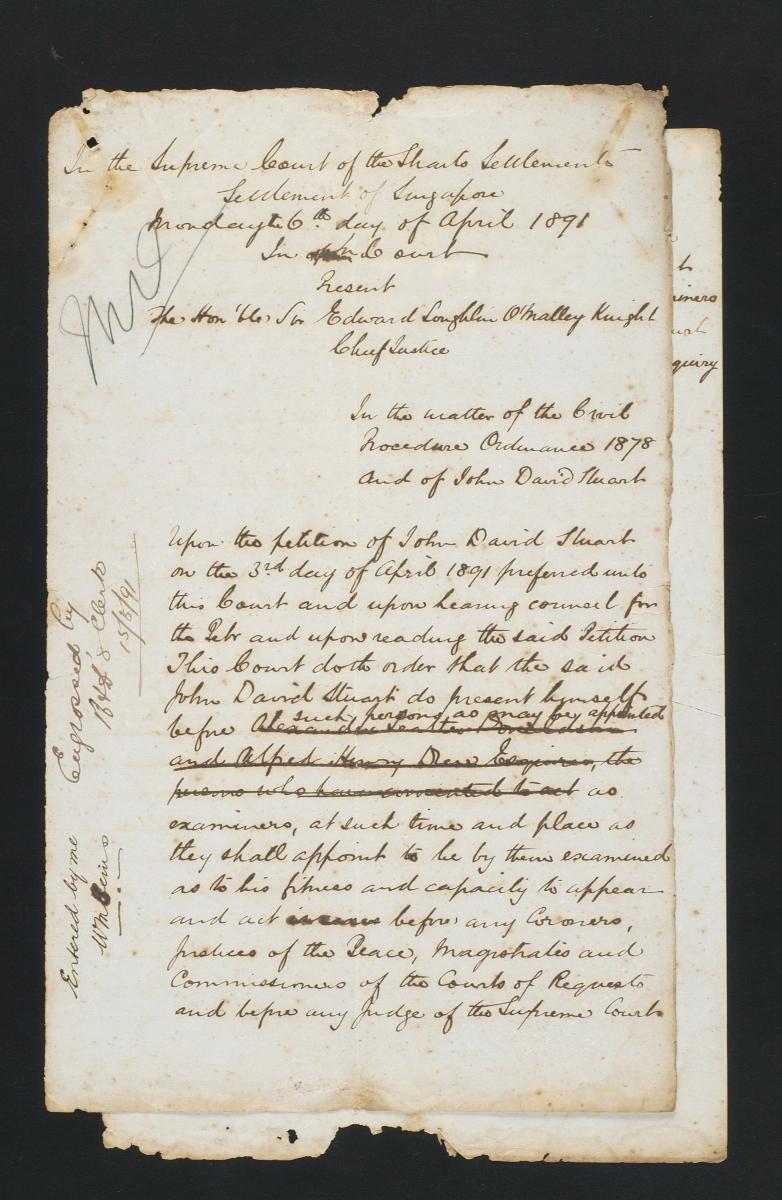 In the Supreme Court of the Straits Settlements
Settlement of Singapore
Monday the 6th day of April 1891
In Court
Present
The Hon'ble Sir Edward Loughlin O'Malley Knight
Chief Justice
In the matter of the Civil
Procedure Ordinance 1878
and of John David Stuart
Upon the petition of John David Stuart
on the 3rd day of April 1891 preferred unto
this Court and upon hearing counsel for
the Petr and upon reading the said Petition
This Court doth order that the said
John David Stuart do present himself
such persons as may be appointed
before Alexander
and Alfred Henry Drew Esquires, the
persons who have consented to act as
examiners, at such time and place as
they shall appoint to be by them examined
as to his fitness and capacity to appear
and act before any Coroners,
Justices of the Peace, Magistrates and
Commissioners of the Courts of Requests
and before any Judge of the Supreme Court
Engrossed by
Clerk
15/6/91
Entered by me
iners
quiry